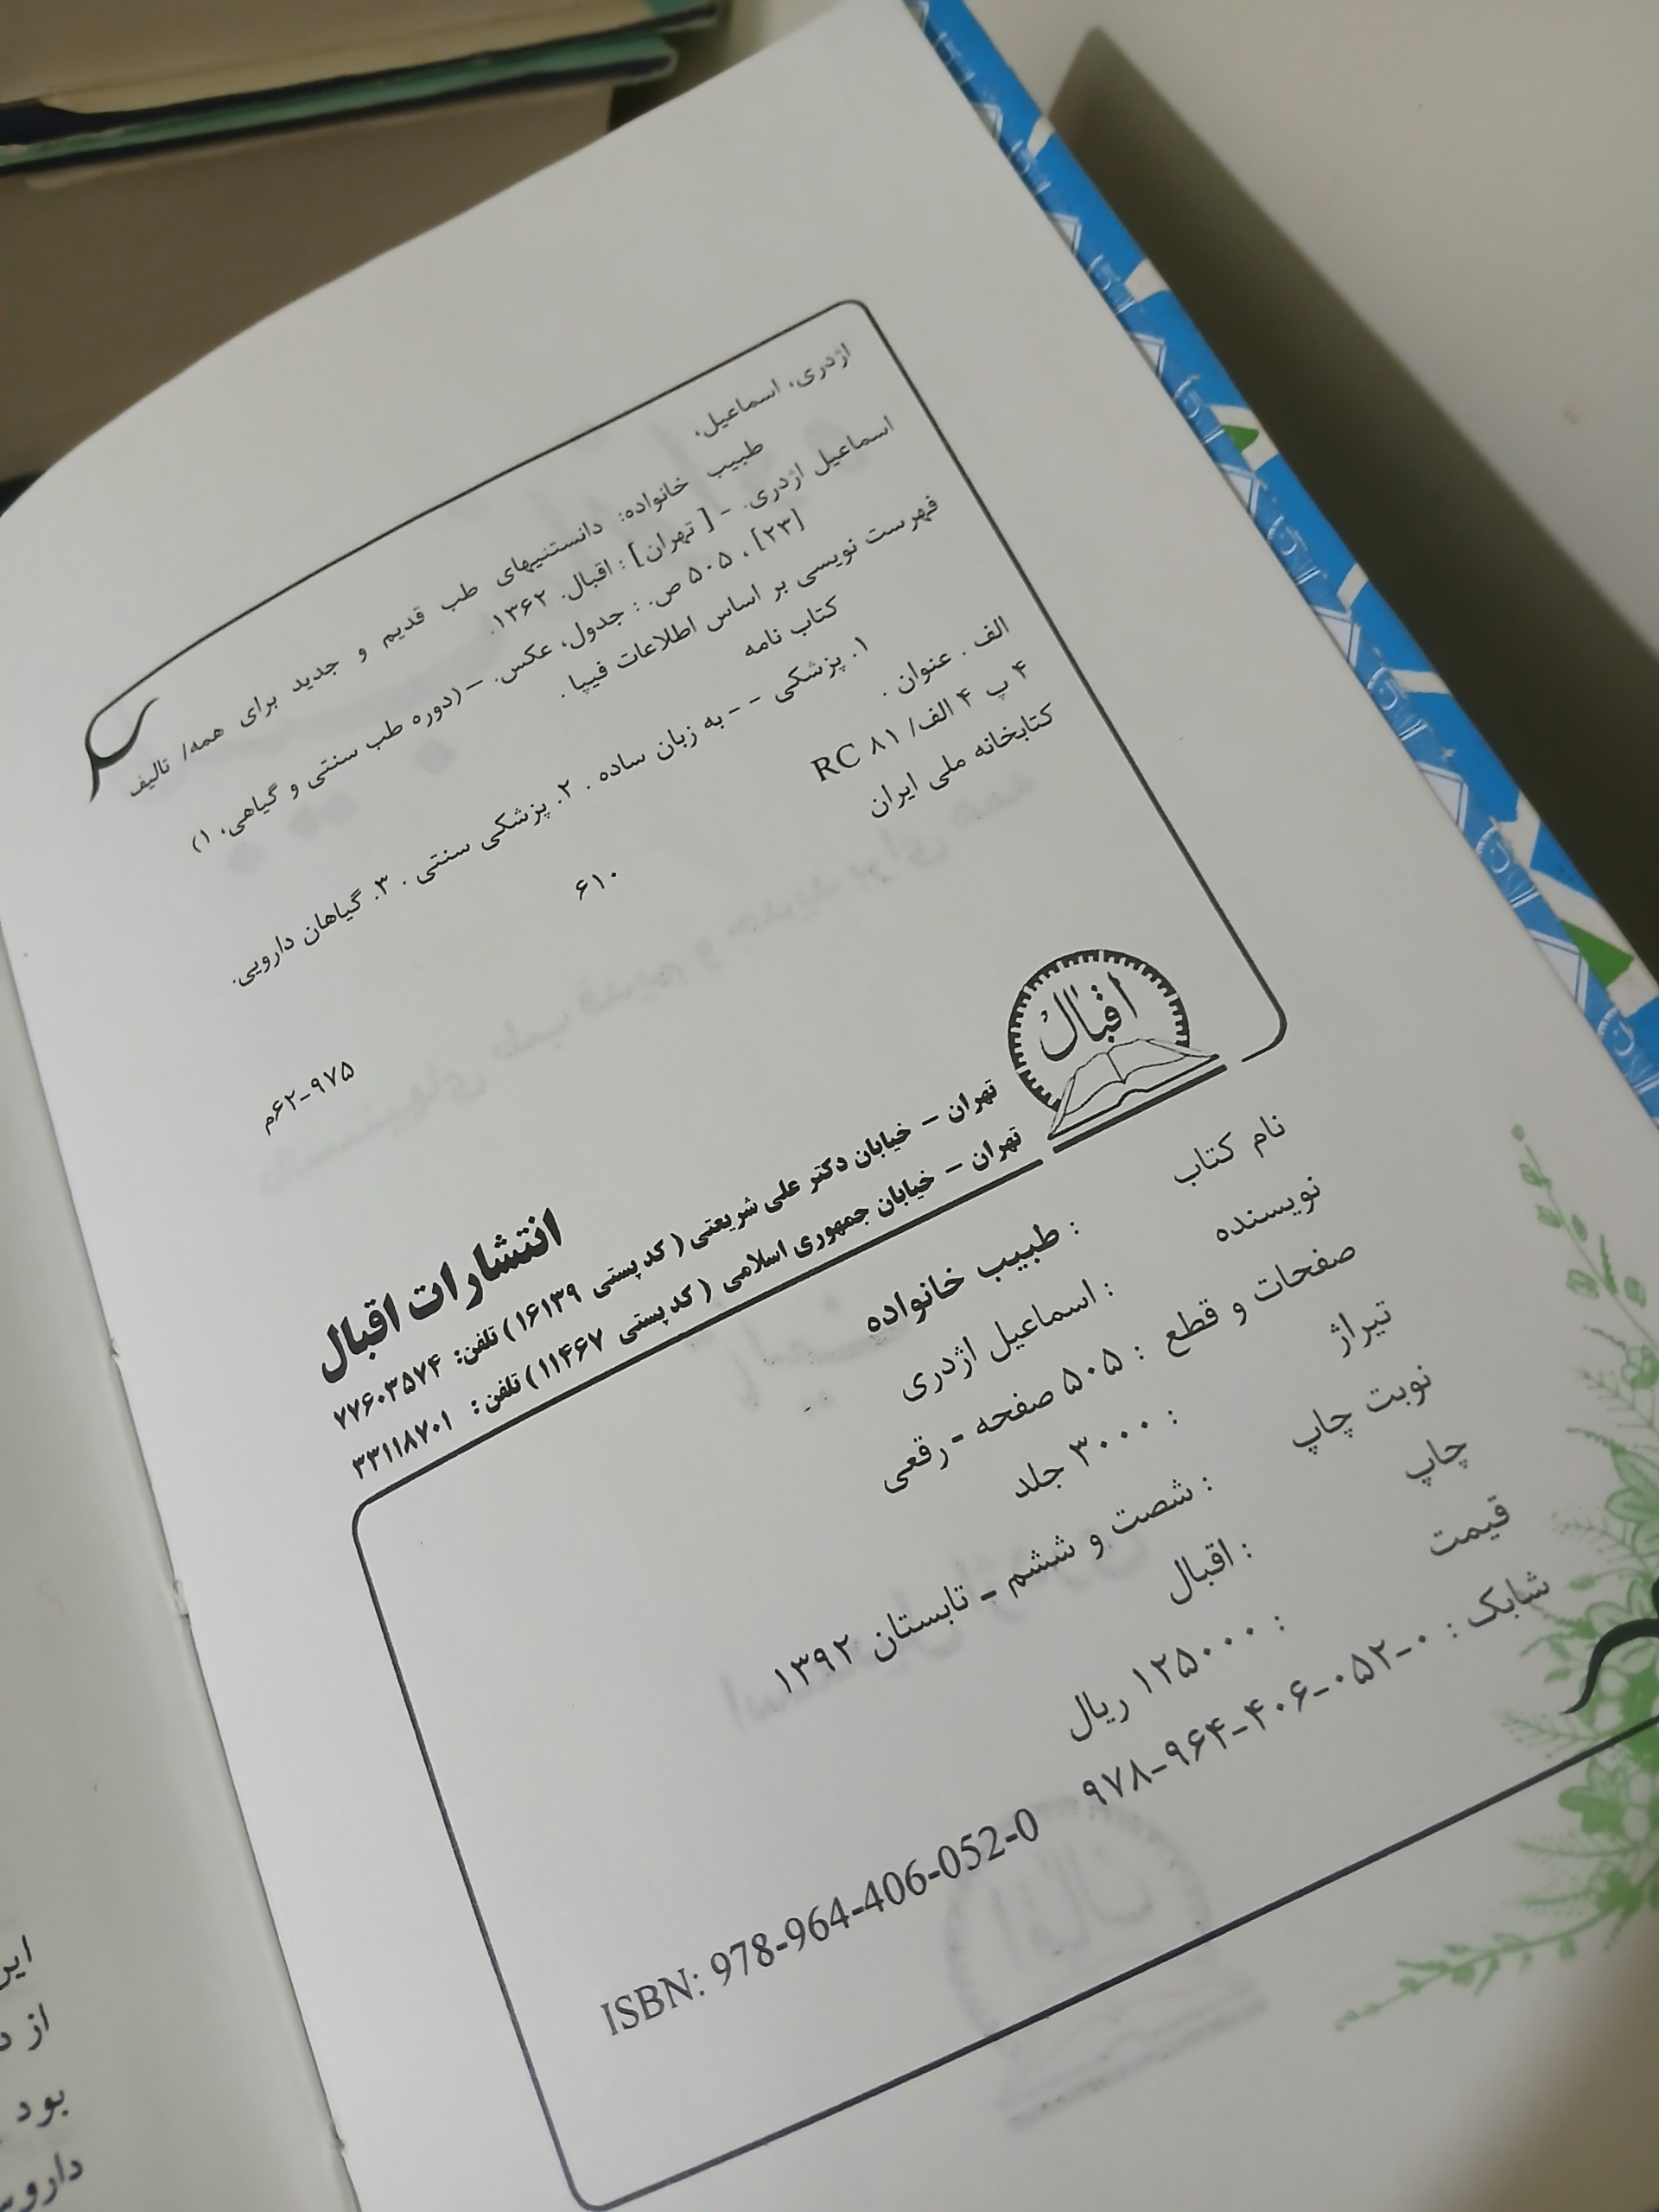 اژدری، اسماعیل،
طبیب خانواده: دانستنیهای طب قدیم و جدید برای همه/ تالیف
اسماعیل اژدری. - [تهران] : اقبال. ۱۳۶۲.
[۲۳] ، ۵۰۵ ص. : جدول، عکس. – (دوره طب سنتی و گیاهی، ۱)
فهرست نویسی بر اساس اطلاعات فیپا .
کتاب نامه
۱. پزشکی - - به زبان ساده . ۲. پزشکی سنتی . ۳. گیاهان دارویی.
الف . عنوان .
۴ پ ۴ الف/ ۸۱ RC
۶۱۰
کتابخانه ملی ایران
۶۲-۹۷۵م
اقبال
انتشارات اقبال
تهران – خیابان دکتر علی شریعتی ( کد پستی ۱۶۱۳۹ ) تلفن: ۷۷۶۰۳۵۷۴
تهران – خیابان جمهوری اسلامی ( کد پستی ۱۱۴۶۷ ) تلفن : ۳۳۱۱۸۷۰۱
نام کتاب : طبیب خانواده
نویسنده : اسماعیل اژدری
صفحات و قطع : ۵۰۵ صفحه - رقعی
تیراژ : ۳۰۰۰ جلد
نوبت چاپ : شصت و ششم - تابستان ۱۳۹۲
چاپ : اقبال
قیمت : ۱۲۵۰۰۰ ریال
شابک : ۰-۰۵۲-۴۰۶-۹۶۴-۹۷۸
ISBN: 978-964-406-052-0
از د
بود